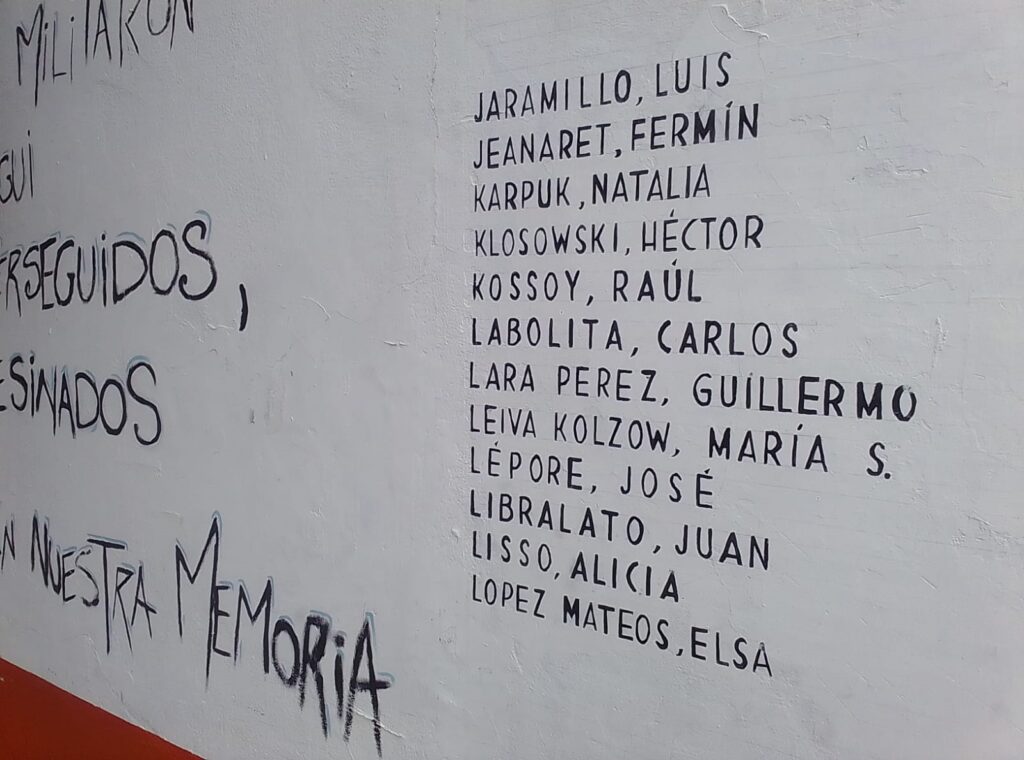 MiLiTARON
GUI
ERSEGUiDOS,
ESiNADOS
N NUESTRA MEMORiA
JARAMILLO, LUIS
JEANARET, FERMÍN
KARPUK, NATALIA
KLOSOWSKI, HÉCTOR
KOSSOY, RAÚL
LABOLITA, CARLOS
LARA PEREZ, GUILLERMO
LEIVA KOLZOW, MARÍA S.
LÉPORE, JOSÉ
LIBRALATO, JUAN
LISSO, ALICIA
LOPEZ MATEOS, ELSA